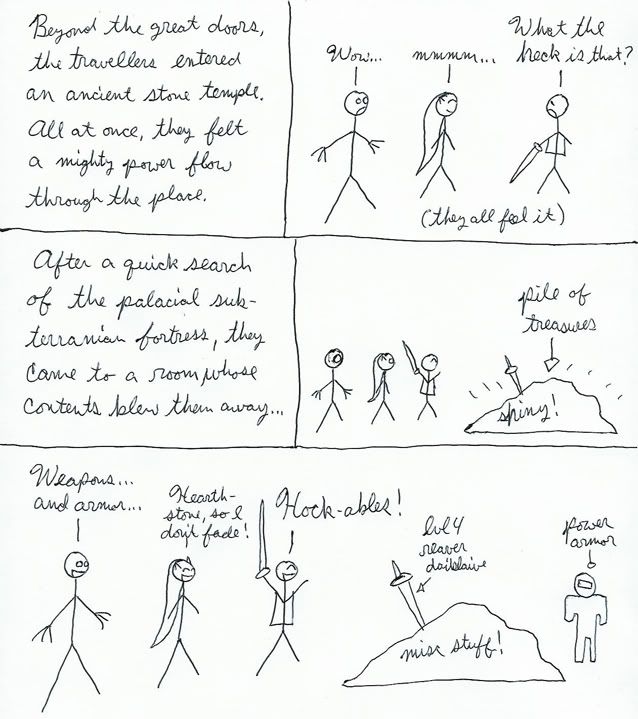 Beyond the great doors,
the travellers entered
an ancient stone temple.
All at once, they felt
a mighty power flow
through the place.
Wow...
mmmm...
What the
heck is that?
(they all feel it)
After a quick search
of the palacial sub-
terranian fortress, they
came to a room, whose
contents blew them away...
pile of
treasures
shiny!
Weapons...
and armor...
Hearth-
stone, so I
don't fade!
Hock-ables!
lvl 4
reaver
daiklaive
misc stuff!
power
armor